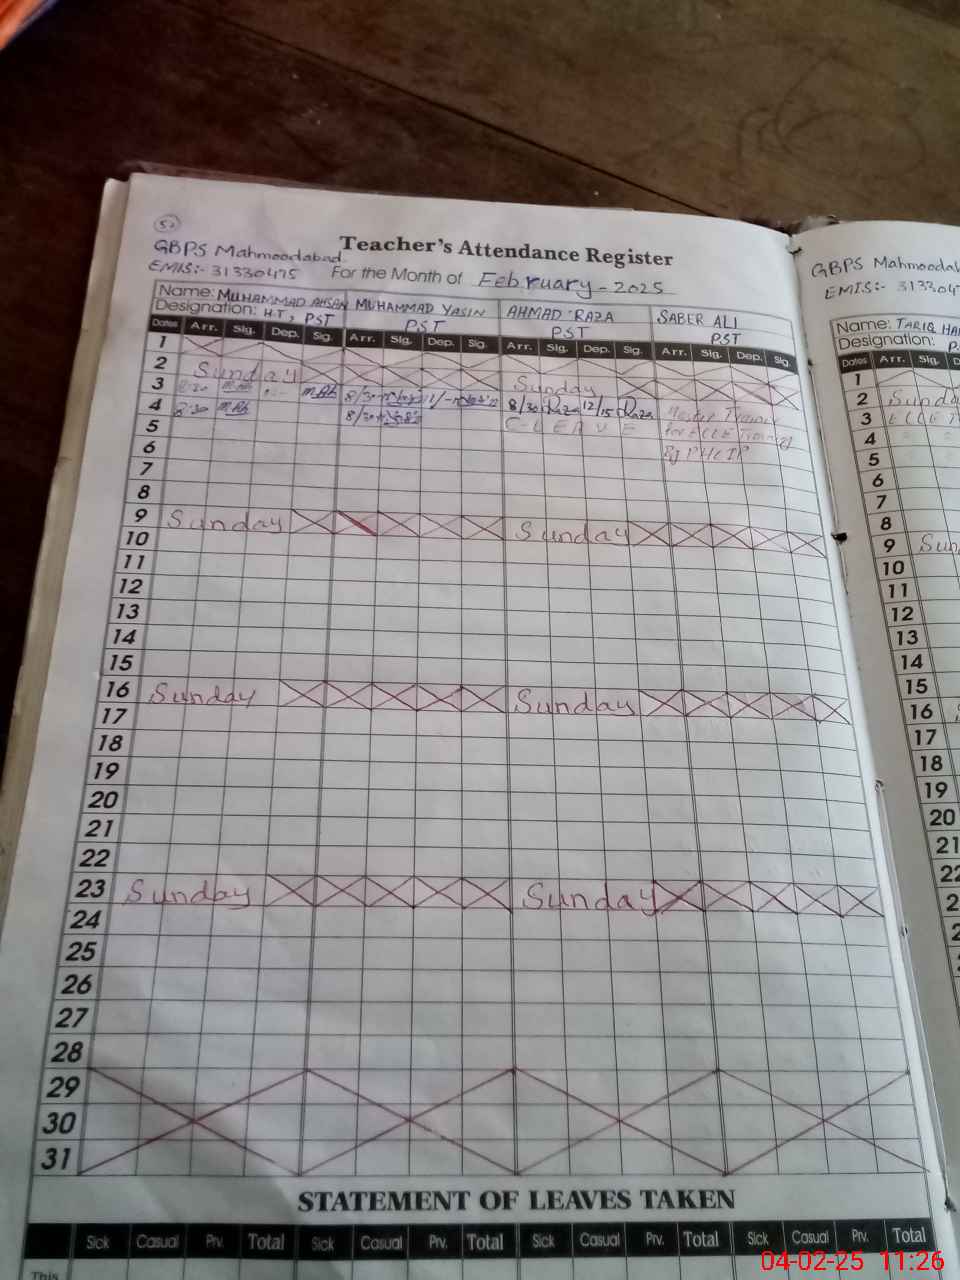 52
GBPS Mahmoodabad
Teacher's Attendance Register
EMIS:- 31330475
For the Month of February - 2025
Name: MUHAMMAD AHSAN MUHAMMAD YASIN AHMAD RAZA SABER ALI
Designation: H.T, PST PST PST PST
Dates Arr. Sig. Dep. Sig. Arr. Sig. Dep. Sig. Arr. Sig. Dep. Sig. Arr. Sig. Dep. Sig.
1
2 Sunday Sunday
3 8:30 8/30 11/- 8/30 Raza 12/15 Raza Master Trainer
4 8:30 8/30 C-LEAVE for ECCE Training
5 By PHCIP
6
7
8
9 Sunday Sunday
10
11
12
13
14
15
16 Sunday Sunday
17
18
19
20
21
22
23 Sunday Sunday
24
25
26
27
28
29
30
31
STATEMENT OF LEAVES TAKEN
Sick Casual Prv. Total Sick Casual Prv. Total Sick Casual Prv. Total Sick Casual Prv. Total
This
GBPS
EMIS:-
Name: TARIQ
Designation:
Dates Arr. Sig.
1
2 Sunday
3 ECCE
4
5
6
7
8
9
10
11
12
13
14
15
16
17
18
19
20
21
04-02-25 11:26